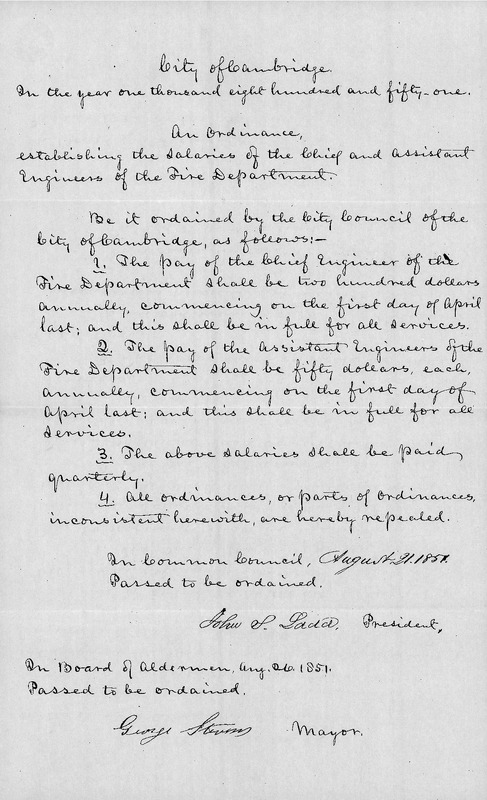 City of Cambridge.
In the year one thousand eight hundred and fifty-one.
An Ordinance,
establishing the salaries of the Chief and Assistant
Engineers of the Fire Department.
Be it ordained by the City Council of the
City of Cambridge, as follows:-
1. The pay of the Chief Engineer of the
Fire Department shall be two hundred dollars
annually, commencing on the first day of April
last; and this shall be in full for all services.
2. The pay of the Assistant Engineers of the
Fire Department shall be fifty dollars, each,
annually, commencing on the first day of
April last; and this shall be in full for all
services.
3. The above salaries shall be paid
quarterly.
4. All ordinances, or parts of ordinances,
inconsistent herewith, are hereby repealed.
In Common Council, August 21. 1851.
Passed to be ordained.
John S. Ladd, President,
In Board of Aldermen, Aug. 26. 1851.
Passed to be ordained.
George Stevens Mayor.